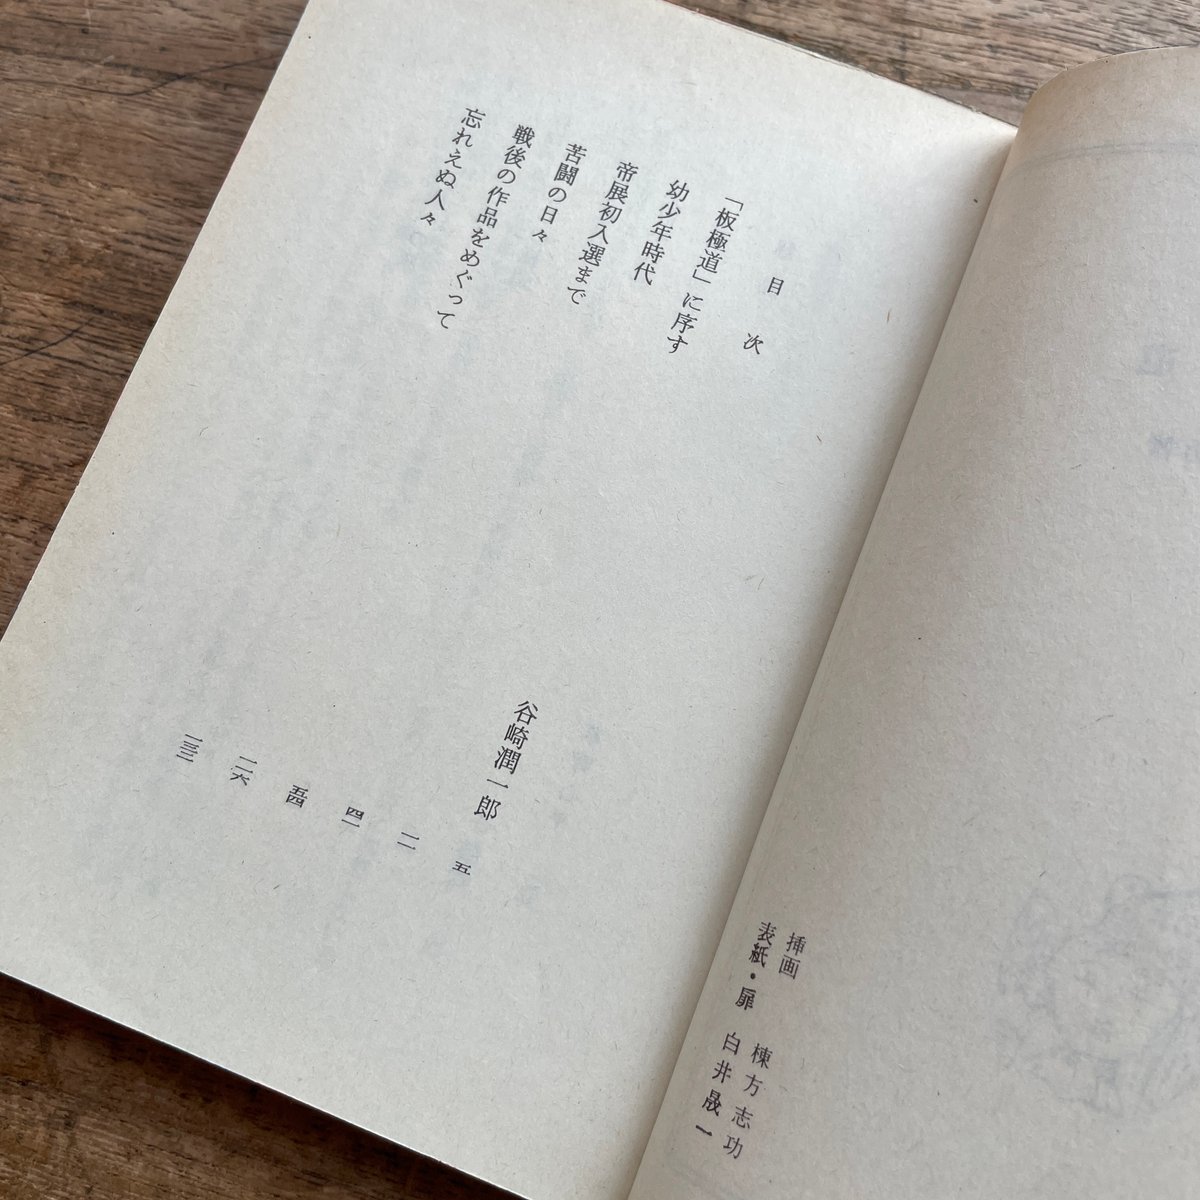 挿画　棟方志功
表紙・扉　白井晟一
目次
「板極道」に序す　谷崎潤一郎　五
幼少年時代　一一
帝展初入選まで　四一
苦闘の日々　五四
戦後の作品をめぐって　一一六
忘れえぬ人々　一三三